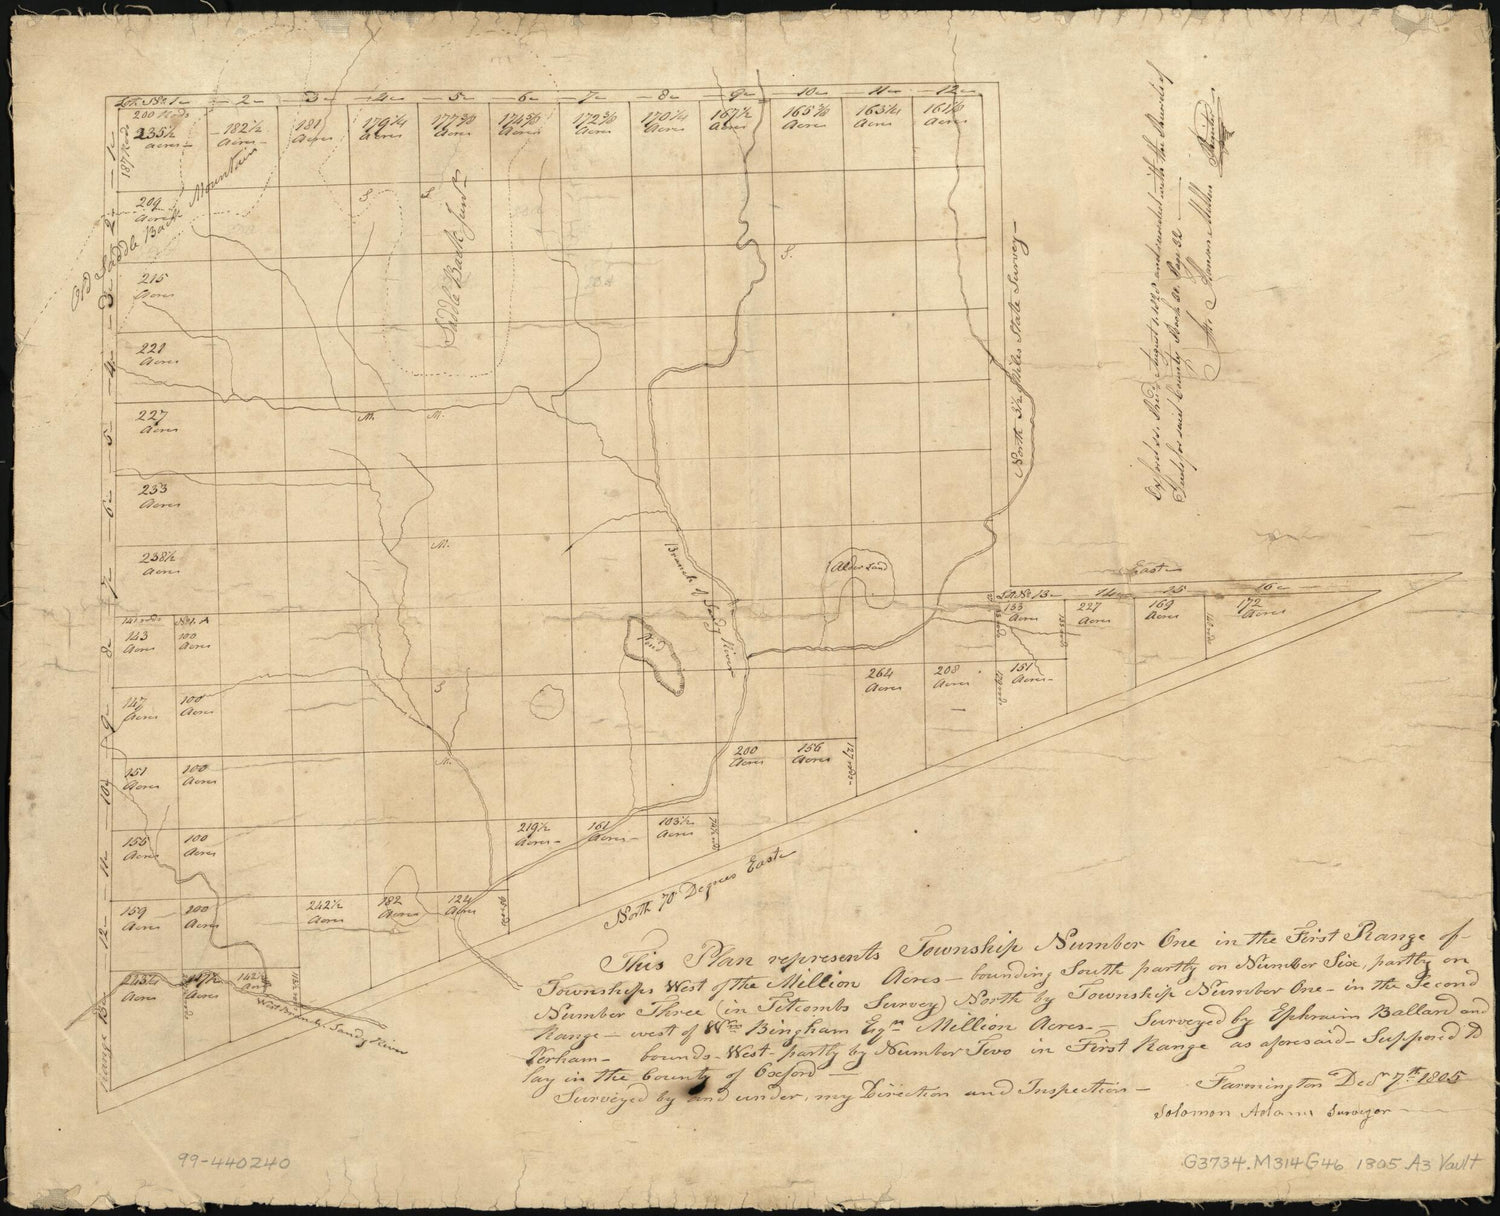 Lot No 1 2 3 4 5 6 7 8 9 10 11 12
200 Rods
235½ Acres 182½ Acres 181 Acres 179¼ Acres 177¾ Acres 174¾ Acres 172¾ Acres 170¼ Acres 167½ Acres 165¾ Acres 163¼ Acres 161½ Acres
187 Rods
Old Saddle Back Mountain
Saddle Back
North 5½ Miles State Survey
209 Acres
215 Acres
221 Acres
227 Acres
233 Acres
238½ Acres
S S S
M. M.
M.
S
M.
1 2 3 4 5 6 7 8 9 10 11 12
Range
Branch of Sandy River
Pond
Alder Land
East
Lot No 13 14 15 16
133 Acres 227 Acres 169 Acres 172 Acres
141 rods No 1. A
143 Acres 100 Acres
147 Acres 100 Acres
264 Acres 208 Acres 151 Acres
151 Acres 100 Acres
200 Acres 156 Acres
127 rods
155 Acres 100 Acres
219½ Acres 161 Acres 103½ Acres
159 Acres 100 Acres 242½ Acres 182 Acres 124 Acres
243¼ Acres 117½ Acres 142 Acres
West Branch Sandy River
North 70 Degrees East
Oxford ss. Recd August 1, and recorded with the Records of
Deeds for said County Book Page 32
Attr
This Plan represents Township Number One in the First Range of
Townships West of the Million Acres bounding South partly on Number Six, partly on
Number Three (in Titcombs Survey) North by Township Number One in the Second
Range west of Wm Bingham Esqrs Million Acres Surveyed by Ephraim Ballard and
bounds West partly by Number Two in First Range as aforesaid Supposed to
lay in the County of Oxford
Surveyed by and under, my Direction and Inspection Farmington Decr 7th 1805
Solomon Adams Surveyor
99-440240
G3734.M314G46 1805 .A3 Vault